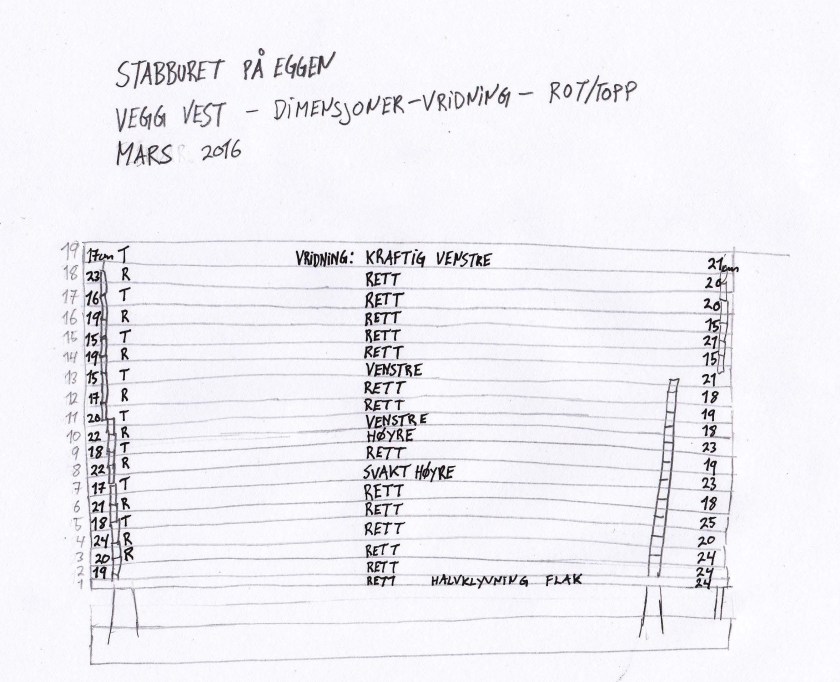 STABBURET PÅ EGGEN
VEGG VEST – DIMENSJONER-VRIDNING – ROT/TOPP
MARS 2016
19 17cm T VRIDNING: KRAFTIG VENSTRE 21cm
18 23 R RETT 20
17 16 T RETT 20
16 19 R RETT 15
15 15 T RETT 21
14 19 R RETT 15
13 15 T VENSTRE 21
12 17 R RETT 18
11 20 T RETT 19
10 22 R VENSTRE 18
9 18 T HØYRE 23
8 22 R RETT 19
7 17 T SVAKT HØYRE 23
6 21 R RETT 18
5 18 T RETT 25
4 24 R RETT 20
3 20 R RETT 24
2 19 RETT 24
1 RETT HALVKLYVNING FLAK 24